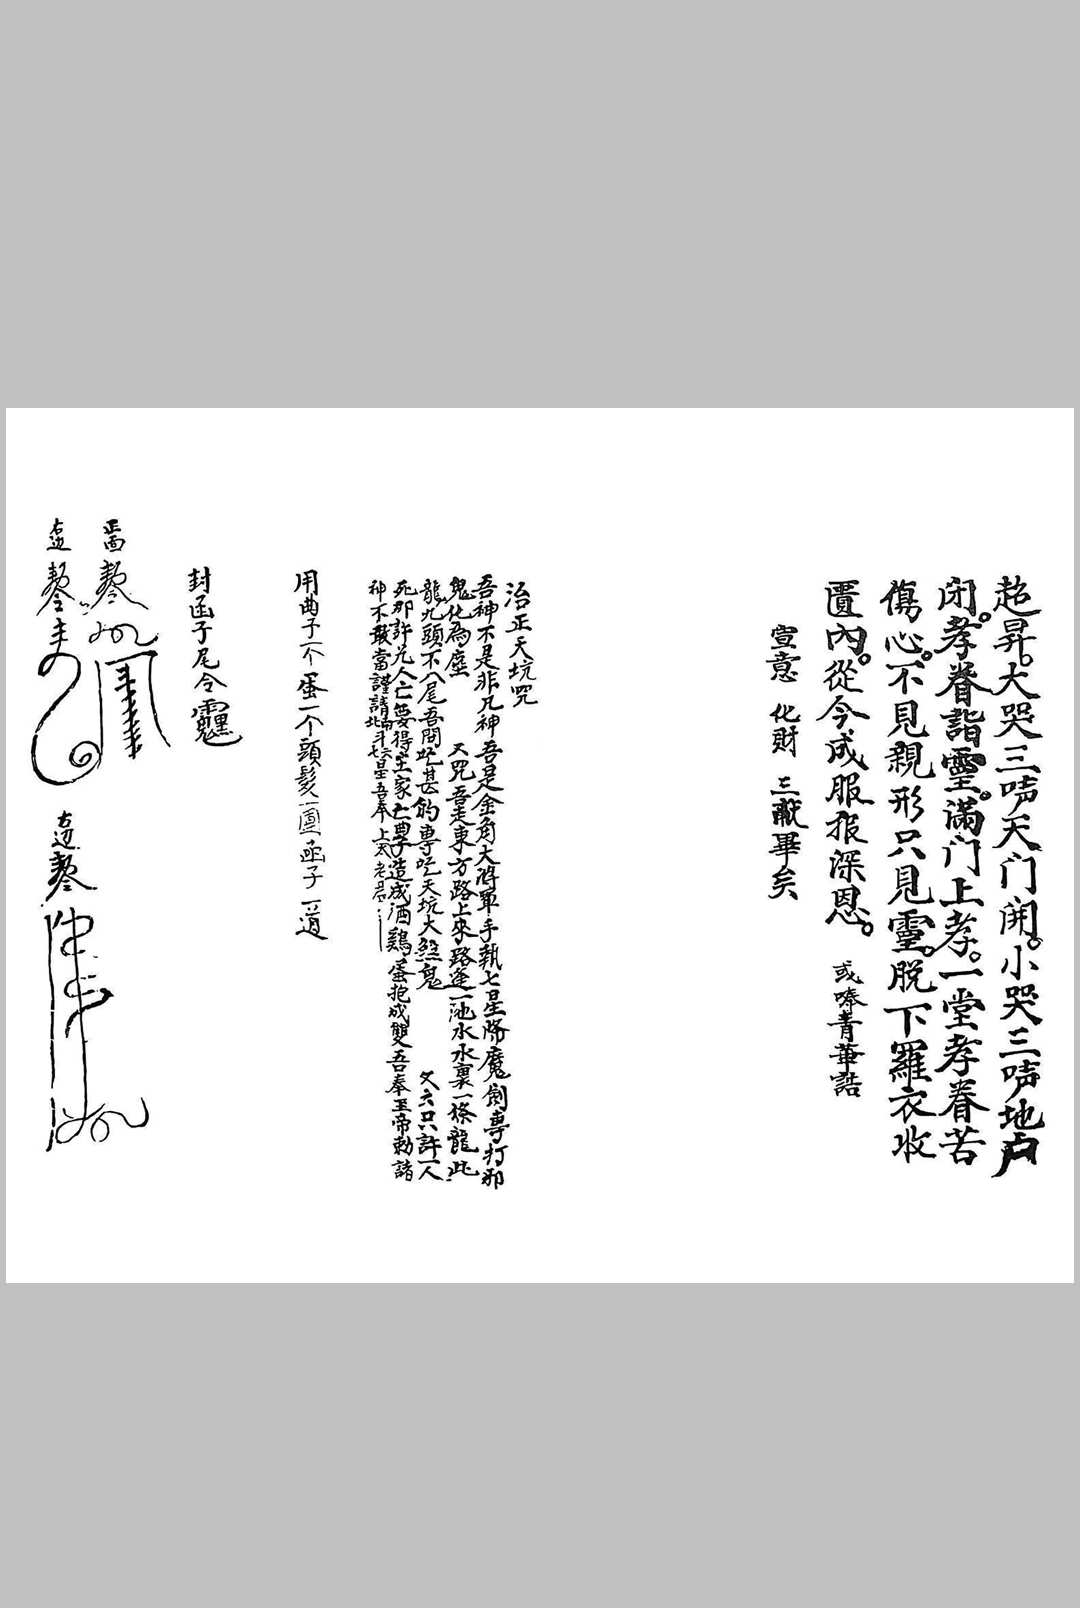 超昇。大哭三声天门開。小哭三声地户
闭。孝眷詣靈。滿门上孝。一堂孝眷苦
傷心。不見親形只見靈。脱下羅衣收
匱內。從今成服报深恩。 或嗪青華誥
宣意 化財 三献畢矣
治正天坑咒
吾神不是非凡神吾是金角大將軍手執七星降魔劍專打邪
鬼化為塵 又咒吾走東方路上來路逢一池水水裏一條龍此
龍九頭不八尾吾問吃甚的專吃天坑大煞鬼 又六只許一人
死那許兄人亡要得主家亡專造成酒鷄蛋抱成雙吾奉玉帝勅諸
神不敢當謹請南斗六星北斗七星吾奉太上老君
用曲子一个蛋一个頭髮一團函子一道
封函子尾令
正面
右边
左边